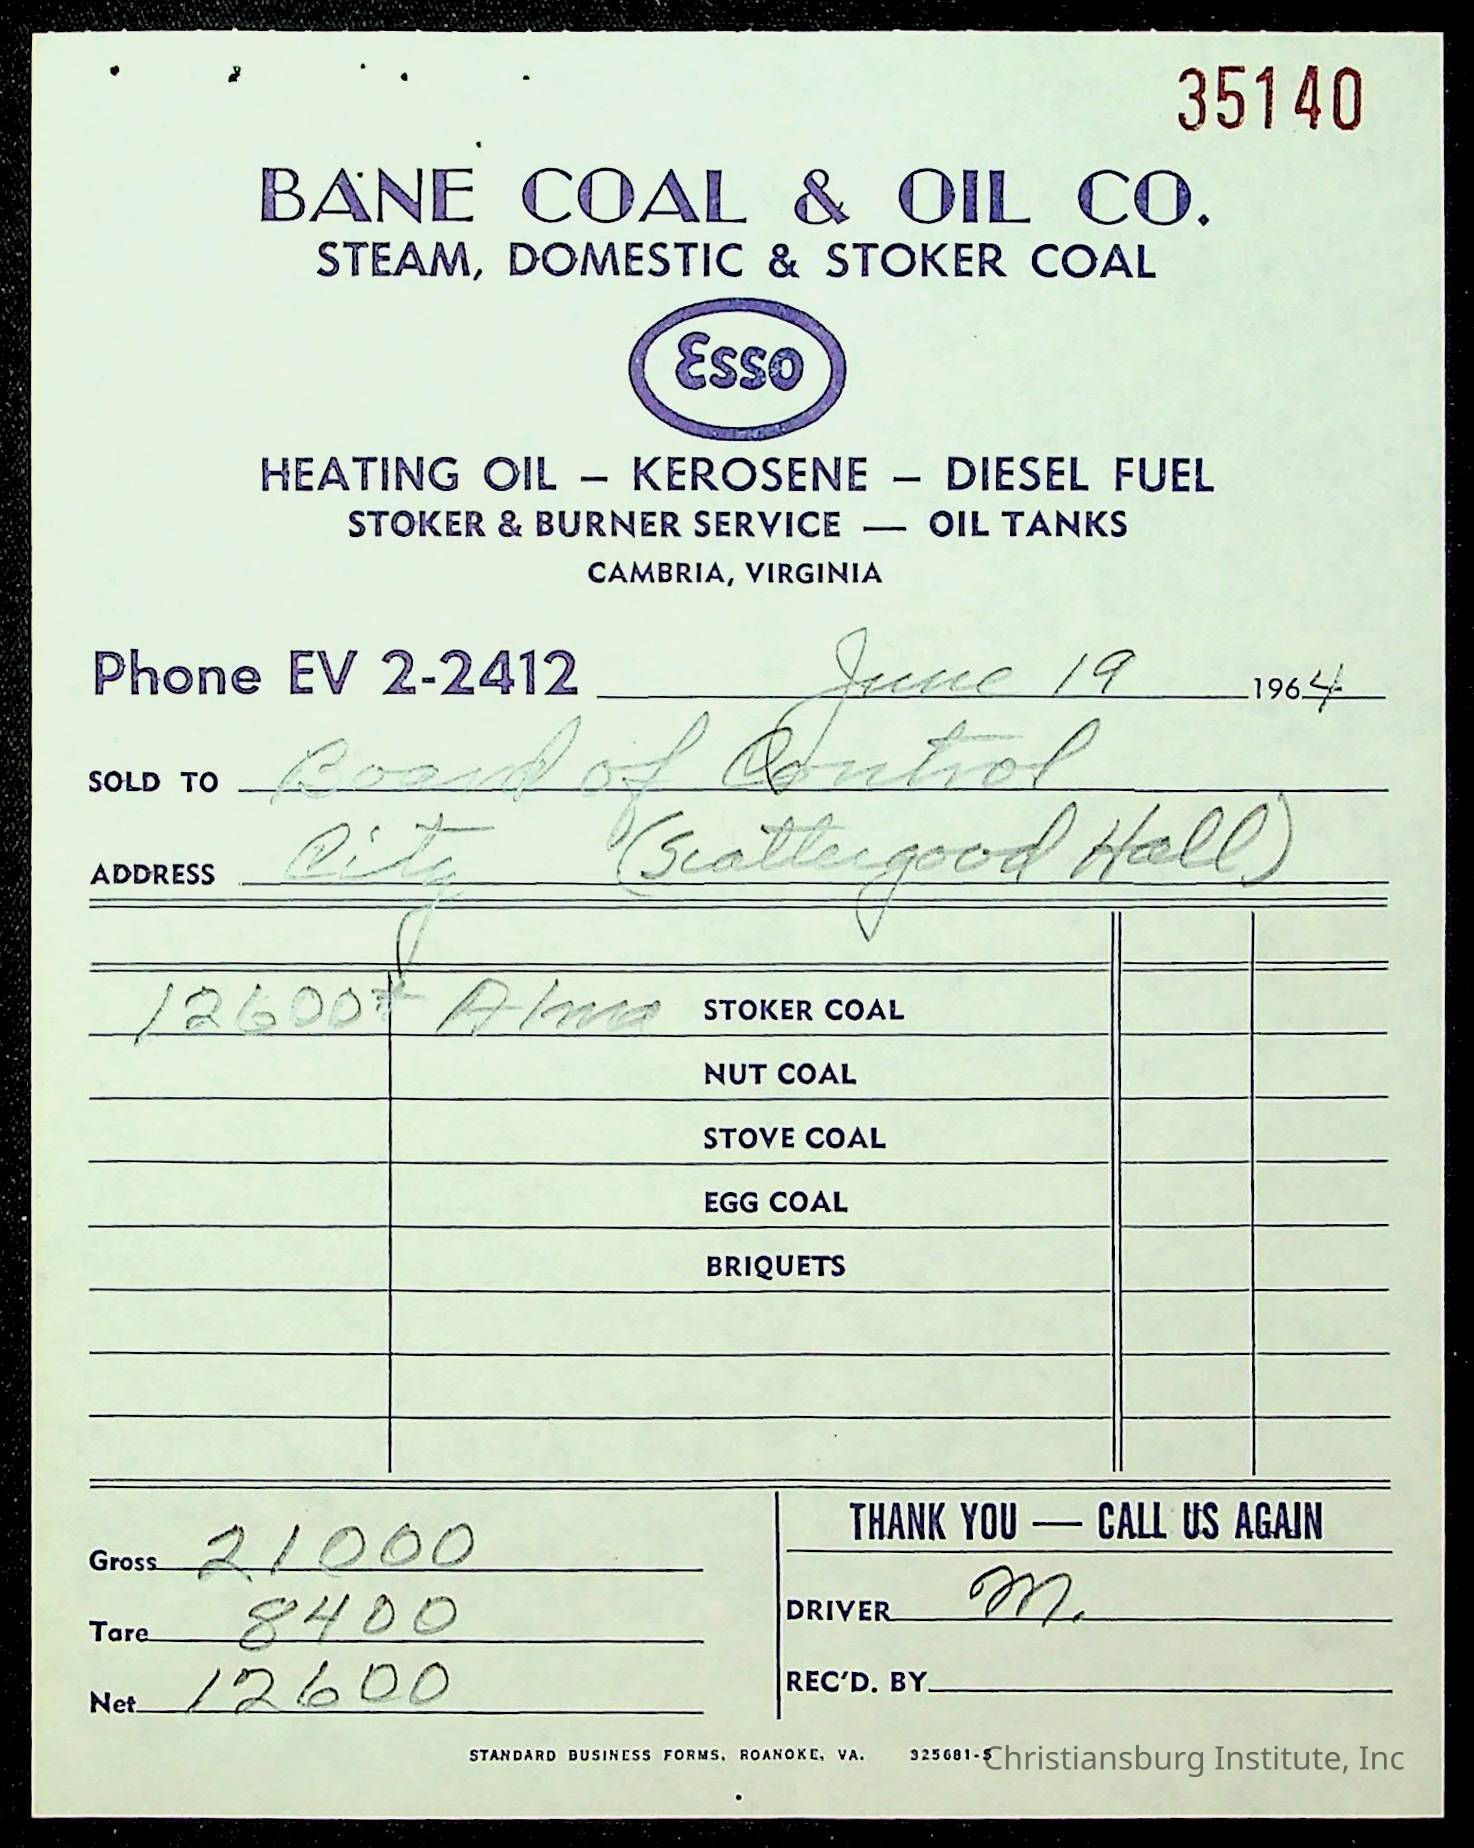 35140
BANE COAL & OIL CO.
STEAM, DOMESTIC & STOKER COAL
Esso
HEATING OIL – KEROSENE – DIESEL FUEL
STOKER & BURNER SERVICE — OIL TANKS
CAMBRIA, VIRGINIA
Phone EV 2-2412 June 19 1964
SOLD TO Board of Control
ADDRESS City (Scattergood Hall)
12600# Alma STOKER COAL
NUT COAL
STOVE COAL
EGG COAL
BRIQUETS
Gross 21000
Tare 8400
Net 12600
THANK YOU — CALL US AGAIN
DRIVER M.
REC'D. BY
STANDARD BUSINESS FORMS, ROANOKE, VA. 325681-S
Christiansburg Institute, Inc